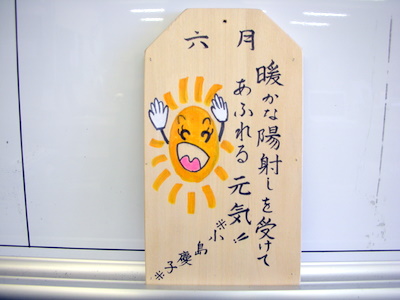 六月
暖かな陽射しを受けて
あふれる元気!!
※小島慶子※